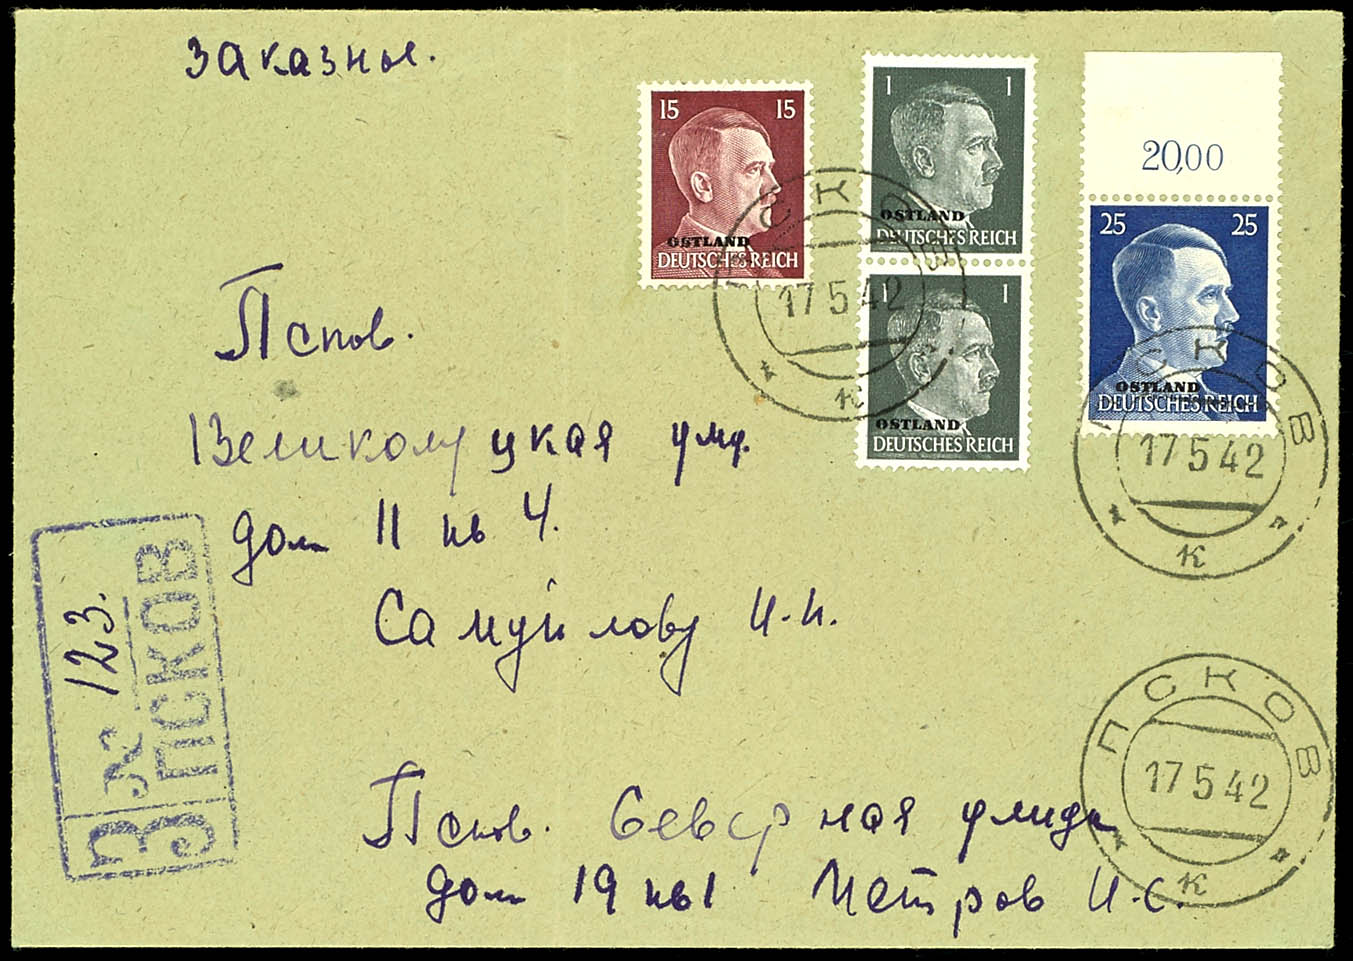 заказные.
15 15
OSTLAND
DEUTSCHES REICH
1 1
OSTLAND
DEUTSCHES REICH
1 1
OSTLAND
DEUTSCHES REICH
20,00
25 25
OSTLAND
DEUTSCHES REICH
ПСКОВ
17 5 42
к
ПСКОВ
17 5 42
к
Псков.
Великолуцкая улц.
дом 11 кв 4.
Самуйлову И.И.
З
№ 123.
ПСКОВ
ПСКОВ
17 5 42
к
Псков. Северная улица
дом 19 кв 1 Петров И.С.